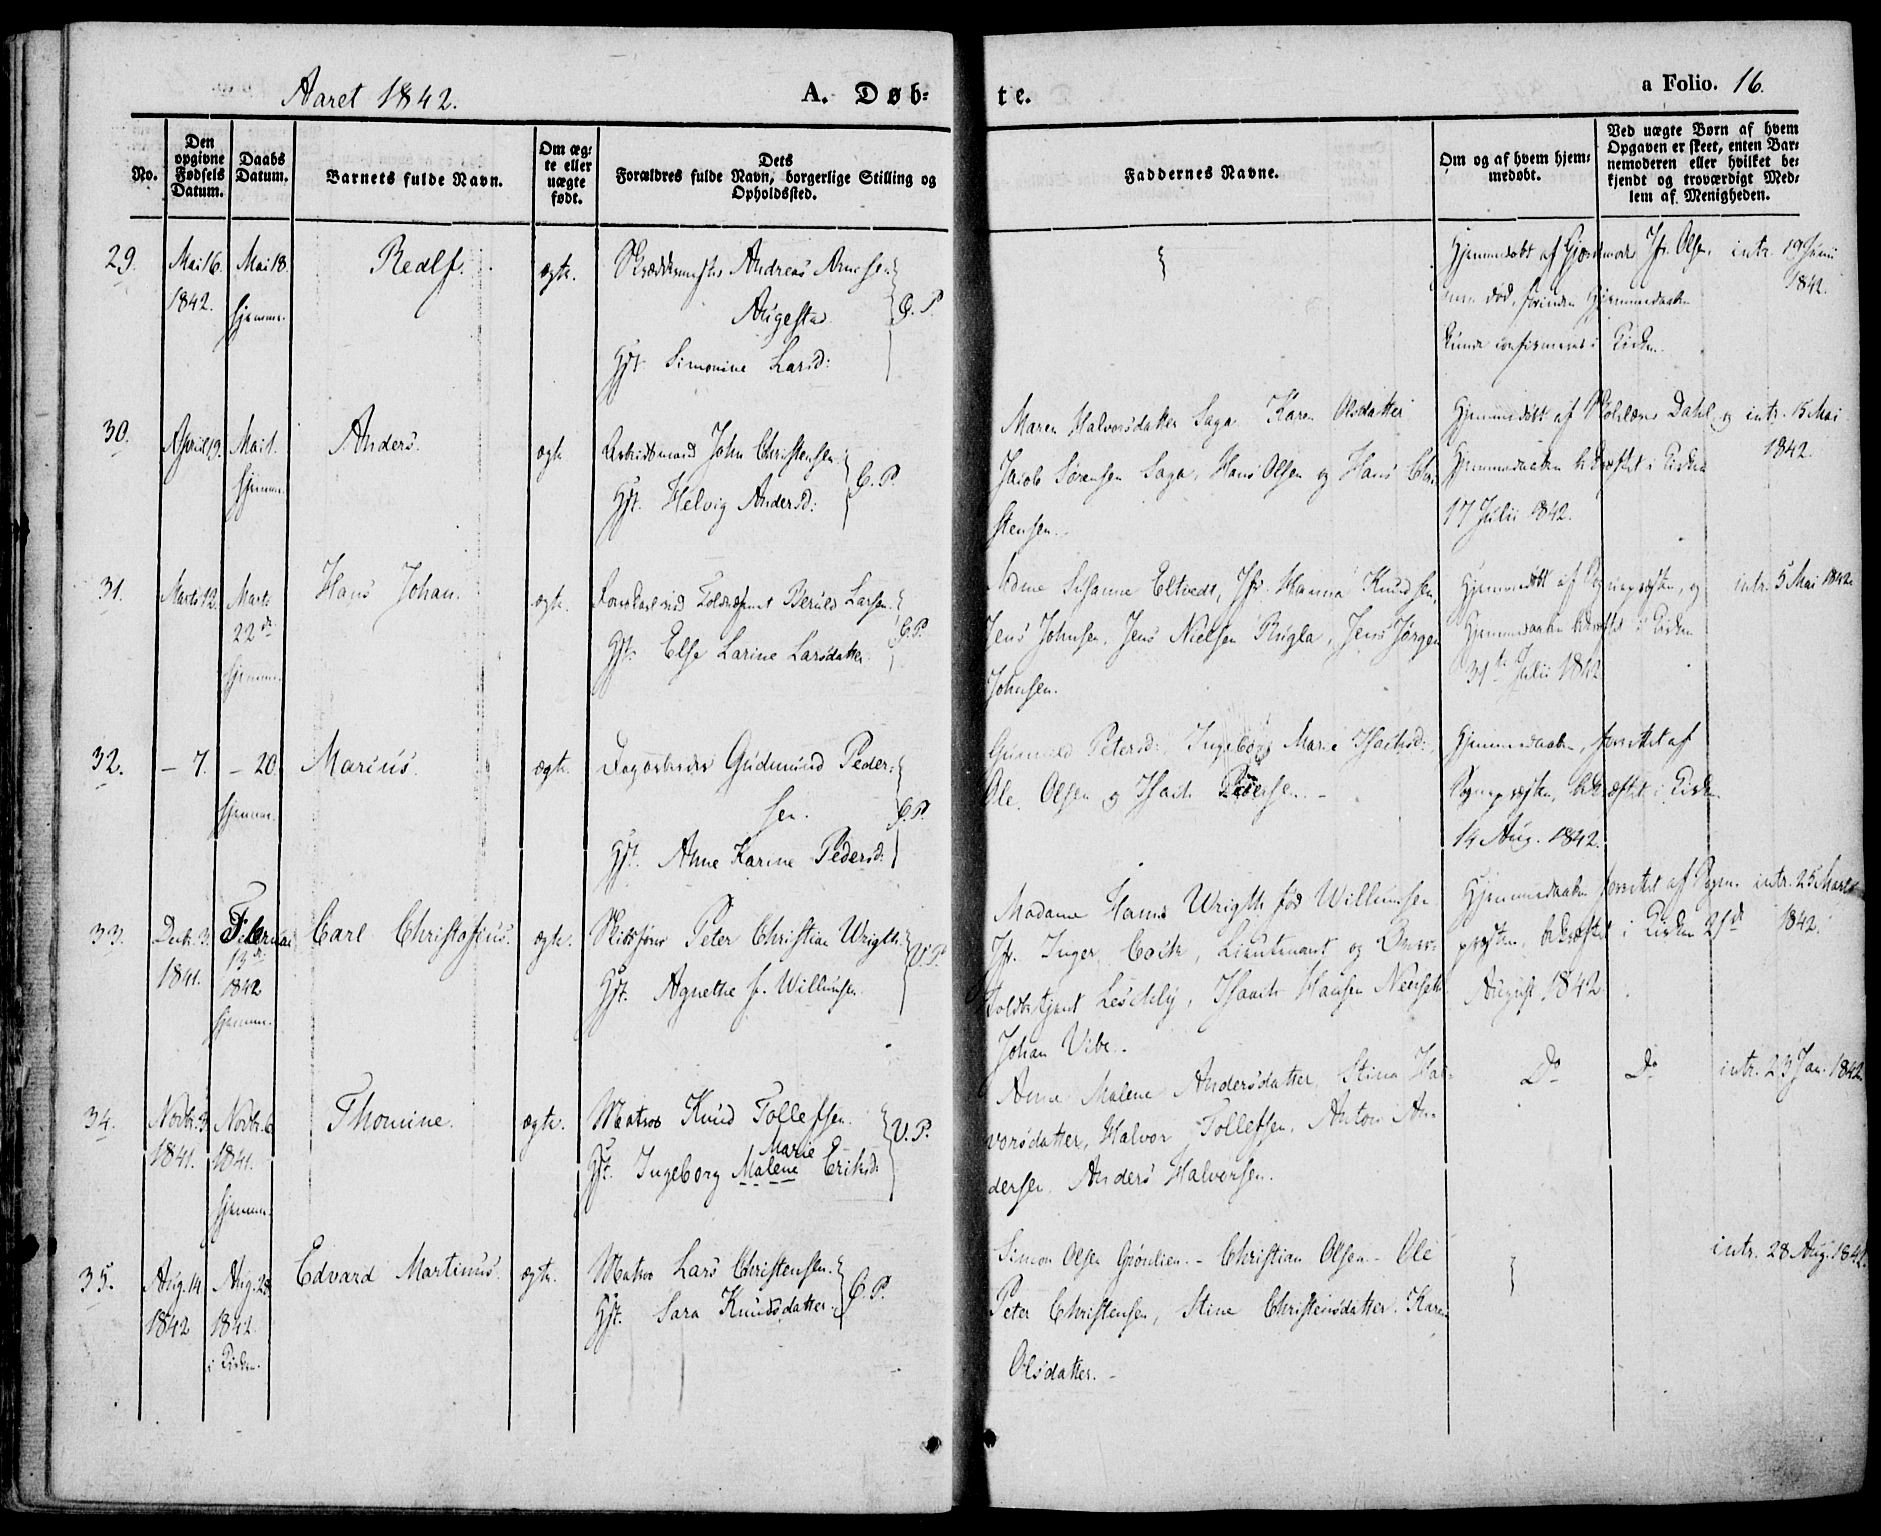 Aaret 1842.
A. Døb-
te.
a Folio. 16.
No.
Den
opgivne
Fødsels
Datum.
Daabs
Datum.
Barnets fulde Navn.
Om æg-
te eller
uægte
født.
Dets
Forældres fulde Navn, borgerlige Stilling og
Opholdssted.
Faddernes Navne.
Om og af hvem hjem-
medøbt.
Ved uægte Børn af hvem
Opgaven er skeet, enten Bar-
nemoderen eller hvilket be-
kjendt og troværdigt Med-
lem af Menigheden.
29.
Mai 16.
1842.
Mai 18.
hjemme.
Realf.
ægte.
Skræddermester Andreas Arnesen
Augestad
Hst. Simonine Larsd:
C. P.
Hjemmedøbt af Jfr. Olsen
død, forinden Hjemmedaaben
kunde confirmeres i Kirken.
intr. 19 Juni
1842.
30.
April 19.
Mai 1.
hjemme.
Anders.
ægte
Arbeidsmand John Christensen
Hst. Helvig Andersd:
C. P.
Maren Halvorsdatter Saga. Karen Olsdatter
Jacob Sørensen Saga, Hans Olsen og Hans Chri-
stensen.
Hjemmedøbt af Skolelærer Dahl, og
Hjemmedaaben bekræftet i Kirken
17 Julii 1842.
intr. 15 Mai
1842.
31.
Marts 12.
Marts
22de
hjemme.
Hans Johan.
ægte.
Larsen
Hst. Else Larine Larsdatter.
C. P.
Mdme Susanne Eltvedt, Jfr. Hanna Knudsen,
Jens Johnsen, Jens Nielsen Rugla, Jens Jørgen
Johnsen.
Hjemmedøbt af Sognepræsten, og
Hjemmedaaben bekræftet i Kirken
31te Julii 1842
intr. 5 Mai 1842.
32.
– 7.
– 20.
hjemme.
Marius.
ægte.
Dagarbeider Gudmund Peder-
sen.
Hst. Anne Karine Pedersd:
C. P.
Petersd:, Ingeborg Marie Isachsd:,
Ole Olsen og Isach Pedersen. –
Hjemmedaaben, forrettet af
Sognepræsten, bekræftet i Kirken
14 Aug. 1842.
33.
Decbr. 3.
1841.
Februar
13de
1842
hjemme.
Carl Christofius.
ægte.
Skibsfører Peter Christian Wrigth.
Hst. Agnethe f. Willumsen
V. P.
Madame Hanna Wrigth fød Willumsen
Jfr. Inger Coch, Lieutenant og Over-
toldbetjent Leschly, Isach Hansen
Johan Vibe.
Hjemmedaaben forrettet af Sogne-
præsten, bekræftet i Kirken 21de
August 1842
intr. 25 Marts
1842.
34.
Novbr. 3.
1841.
Novbr. 6
1841.
hjemme.
Thomine.
ægte.
Matros Knud Tollefsen.
Marie
Hst. Ingeborg Malene Eriksd:
V. P.
Anne Malene Andersdatter, Stina Hal-
vorsdatter, Halvor Tollefsen, Anton An-
dersen, Anders Halvorsen.
Do
Do
intr. 23 Jan. 1842.
35.
Aug. 14.
1842
Aug. 28.
1842.
i Kirken.
Edvard Martinus.
ægte.
Matros Lars Christensen.
Hst. Sara Knudsdatter.
C. P.
Simon Olsen Grønlien. – Christian Olsen – Ole
Peter Christensen, Stine Christensdatter. Karen
Olsdatter. –
intr. 28 Aug. 1842.